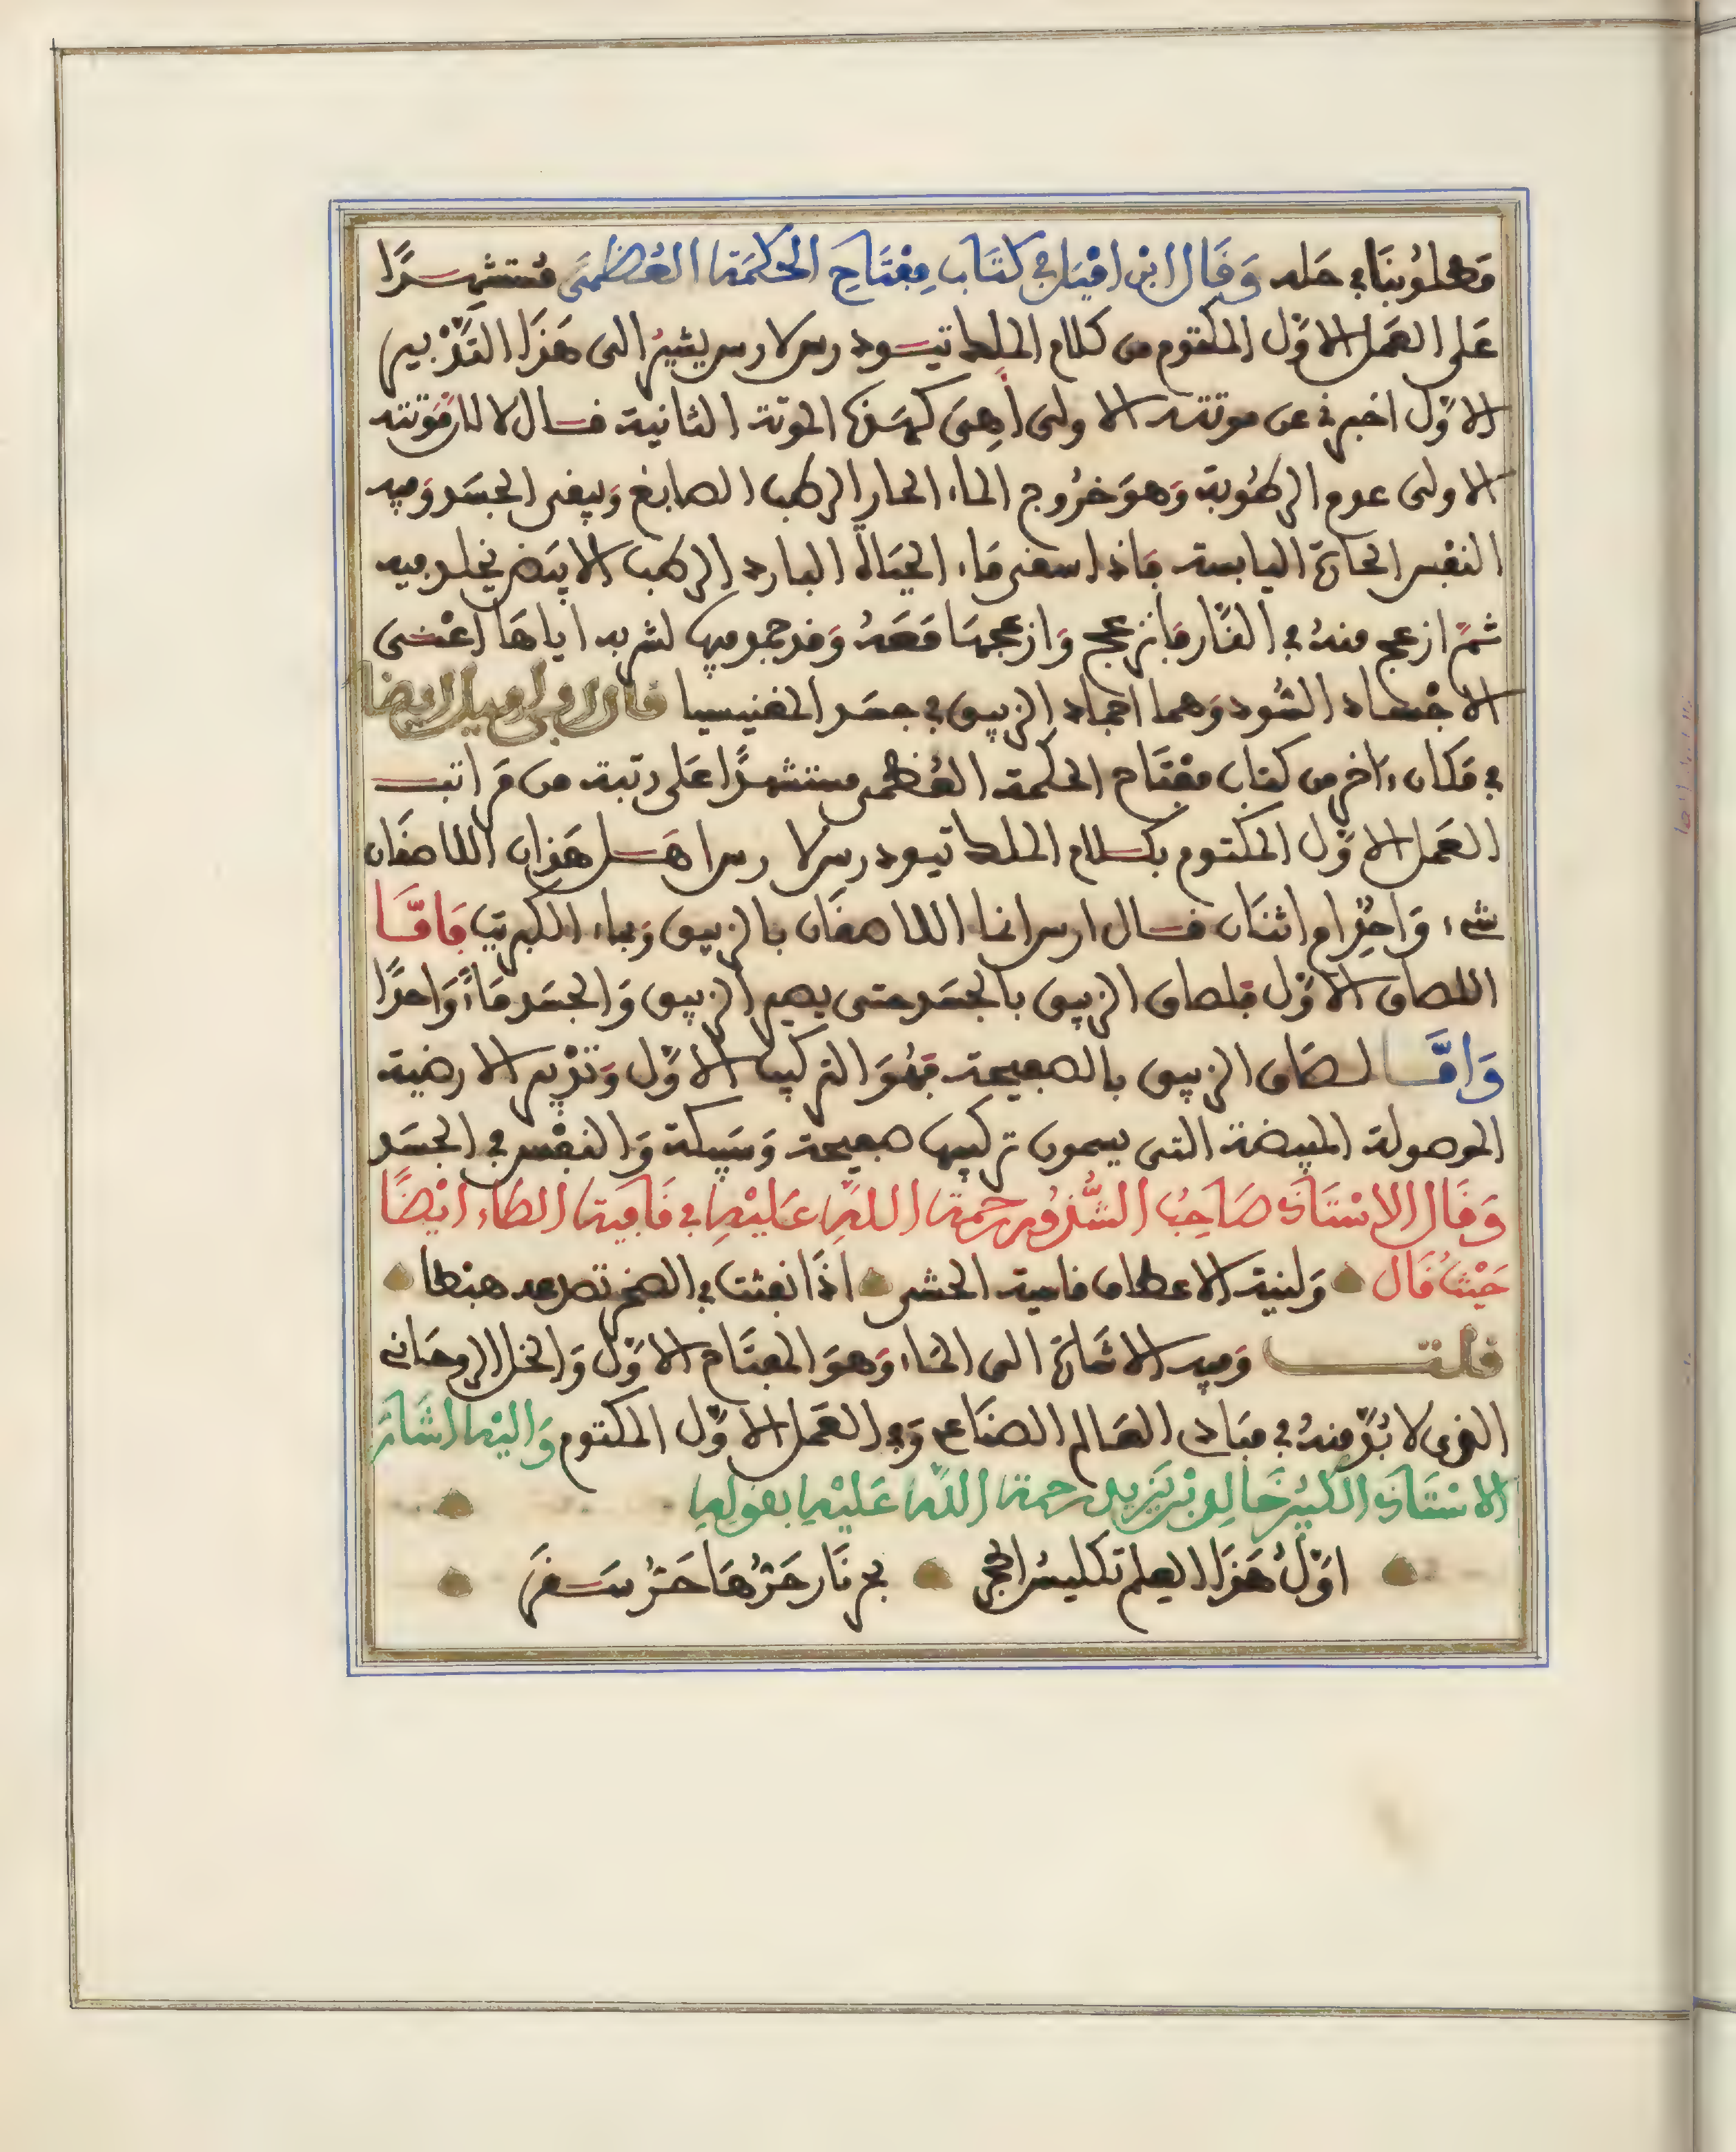 مطلوبنا في حله وَقَال ابن امْيَل في كتَاب مِفْتَاحِ الحكمَة العُظمَى مُستشهِدًا
عَلى العمَل الاوّل المكتوم من كلام الملك تيسود رس لارس يشيرُ الى هَذا التَّدْبير
الاوّل اخبرني عن موتته الاولى أهىَ كهَذه الموتة الثانية فسال لا لان مَوتته
الاولى عدم الرطُوبة وَهوَ خرُوج الماء الحار الرطب الصابغ وَيبقى الجسَد وَفيه
النفس الحارة اليابسة فاذا سقى مَاء الحيَاة البارد الرطب الابيَض يخلد فيه
ثمّ ازعج منهُ في النَّار فانزعج وَازعجهَا مَعَهُ وَقد جمد فيها لشربه اياهَا اعْنى
الاجْساد السُّود وَهما اجماد الزيبق في جسَد المغنيسيا قال ابن اميل ايضا
في مَكان ءاخر من كتاب مفْتَاح الحكمة العُظمى مستشهدًا عَلى رتبة من مَراتب
العمَل الاوّل المكتوم بكلام الملك تيود رس لا رس اهَل هَذان اللاصقَان
شىء وَاحِد ام اثنَان فسال ارس انما اللاصقَان بالزيبق وَبماء الكبريت فَامَّا
اللصاق الاوّل فلصاق الزيبق بالجسَد حتى يصير الزيبق وَالجسَد مَاءً وَاحدًا
وَامَّا لصَاق الزيبق بالصفيحة فهُوَ التركيب الاوّل وَتدْبير الارضية
الموصولة المبيضة التى يسمون تركيبها صفيحة وَسَبيكة وَالنفْس في الجسَد
وَقَال الاسْتَاذ صَاحِبُ الشُّذُور رحمة اللهِ عَليْهِ في قَافية الطاء ايْضًا
حَيْثُ قَال وَلينة الاعطاف قاسية الحشى اذَا نفثت في الصخر تصرعه هبطا
قلت وَفيه الاشَارة الى المَاء وَهوَ المفتَاح الاوّل وَالخل الروحَاني
الذى لا بُدّ منهُ في مبَادى العَالم الصنَاعى وَفى العمَل الاوّل المكتوم وَاليْه اشَارَ
الاسْتَاذ الكبيرُ خَالِد بْن يَزيد رحمة اللهِ عَليْه بقوله
اوّلُ هَذَا العِلم تكليسُ الحجر بحر نَار حَرُّهَا حَرُّ سَقرَ